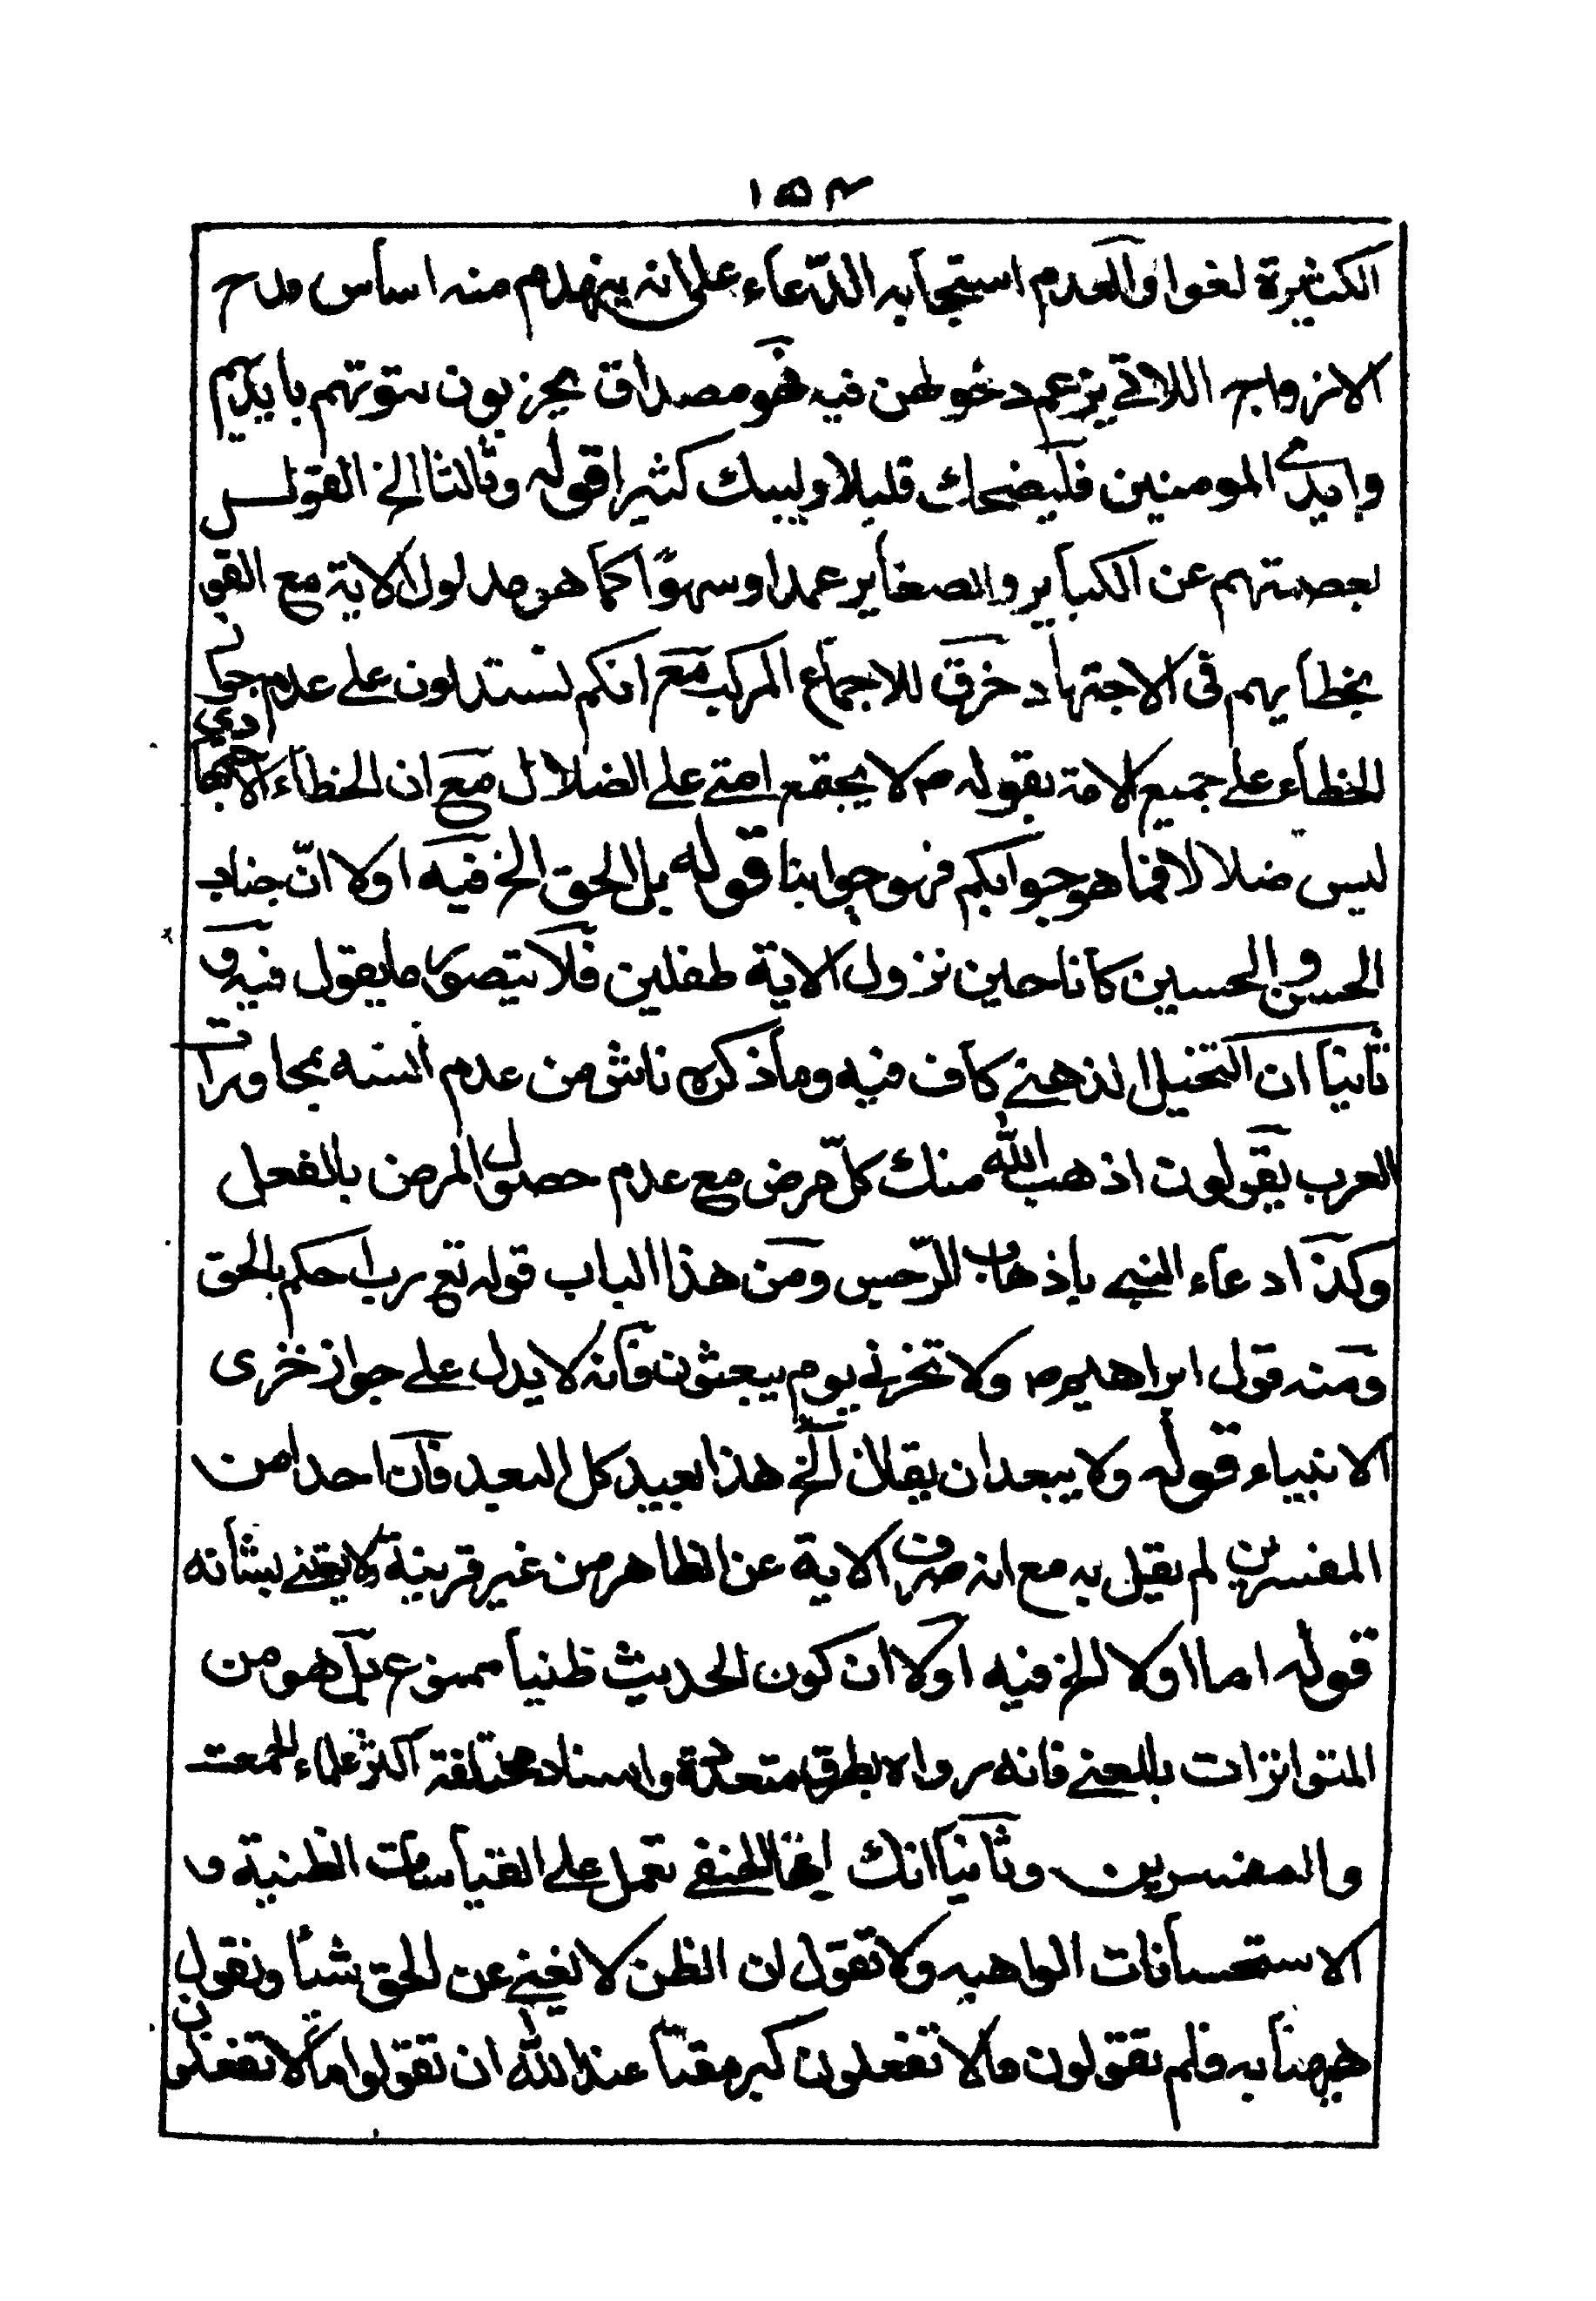 ١٥٤
الكثيرة لغوا والعدم استجابه الدّعاء على انه ينهدم منه اساس مدح
الازواج اللاتي يزعم دخولهن فيه فهو مصداق يخربون بيوتهم بايديهم
وايدي المومنين فليضحك قليلا وليبك كثيرا قوله وثالثا الخ القول
بعصمتهم عن الكباير والصغاير عمدا وسهوًا كما هو مدلول الاية مع القو
بخطايهم فى الاجتهاد خرق للاجماع المركب مع انكم تستدلون على عدم جواز
الخطاء على جميع الامة بقوله ص لا يجتمع امتى على الضلال مع ان الخطاء الاجتهادي
ليس ضلالا فما هو جوابكم فهو جوابنا قوله بل الحق الخ فيه اولا انّ جناب
الحسن و الحسين كانا حين نزول الاية طفلين فلا يتصور ما يقول فيه و
ثانيا ان التخيل الذهنى كاف فيه وما ذكره ناش من عدم انسه بمحاورات
العرب يقولون اذهب الله منك كلّ مرض مع عدم حصول المرض بالفعل
وكذا دعاء النبى باذهاب الرّجس ومن هذا الباب قوله تع رب احكم بالحق
ومنه قول ابراهيم ولا تخزني يوم يبعثون فانه لا يدل على جواز خزى
الانبياء قوله ولا يبعد ان يقال الخ هذا بعيد كل البعد فان احدا من
المفسرين لم يقل به مع انه صرف الاية عن الظاهر من غير قرينة ولا يعتنى بشانه
قوله اما اولا الخ فيه اولا ان كون الحديث ظنيا ممنوع بل هو من
المتواترات بالمعنى فانه رواه بطرق متعددة واسناد مختلفة اكثر علماء الجمعت
والمفسرين وثانيا انك ايها الحنفى تعمل على القياسات الظنية و
الاستحسانات الواهيه ولا تقول ان الظن لا يغنى عن الحق شيئا وتقول
هيهنا به فلم تقولون ما لا تفعلون كبر مقتا عند الله ان تقولوا ما لا تفعلون